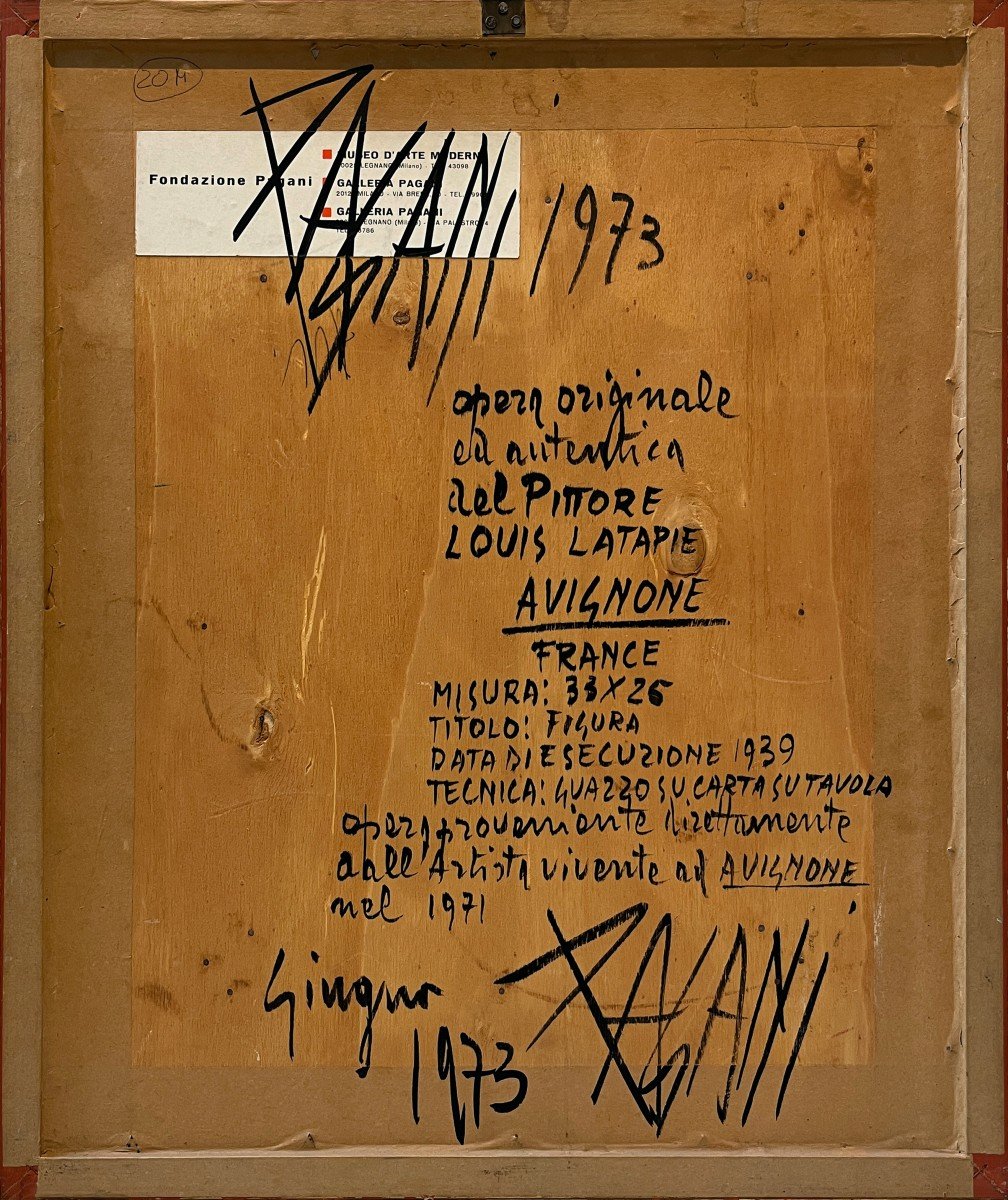 20 M
Fondazione Pagani
MUSEO D'ARTE MODERNA
LEGNANO (Milano) - 43098
GALLERIA PAGANI
MILANO - VIA - TEL.
GALLERIA PAGANI
LEGNANO (Milano) - VIA PALESTRO
PAGANI 1973
opera originale
ed autentica
del PITTORE
LOUIS LATAPIE
AVIGNONE
FRANCE
MISURA: 33 X 26
TITOLO: FIGURA
DATA DI ESECUZIONE 1939
TECNICA: GUAZZO SU CARTA SU TAVOLA
opera proveniente direttamente
dall'Artista vivente ad AVIGNONE
nel 1971
Giugno
1973
PAGANI